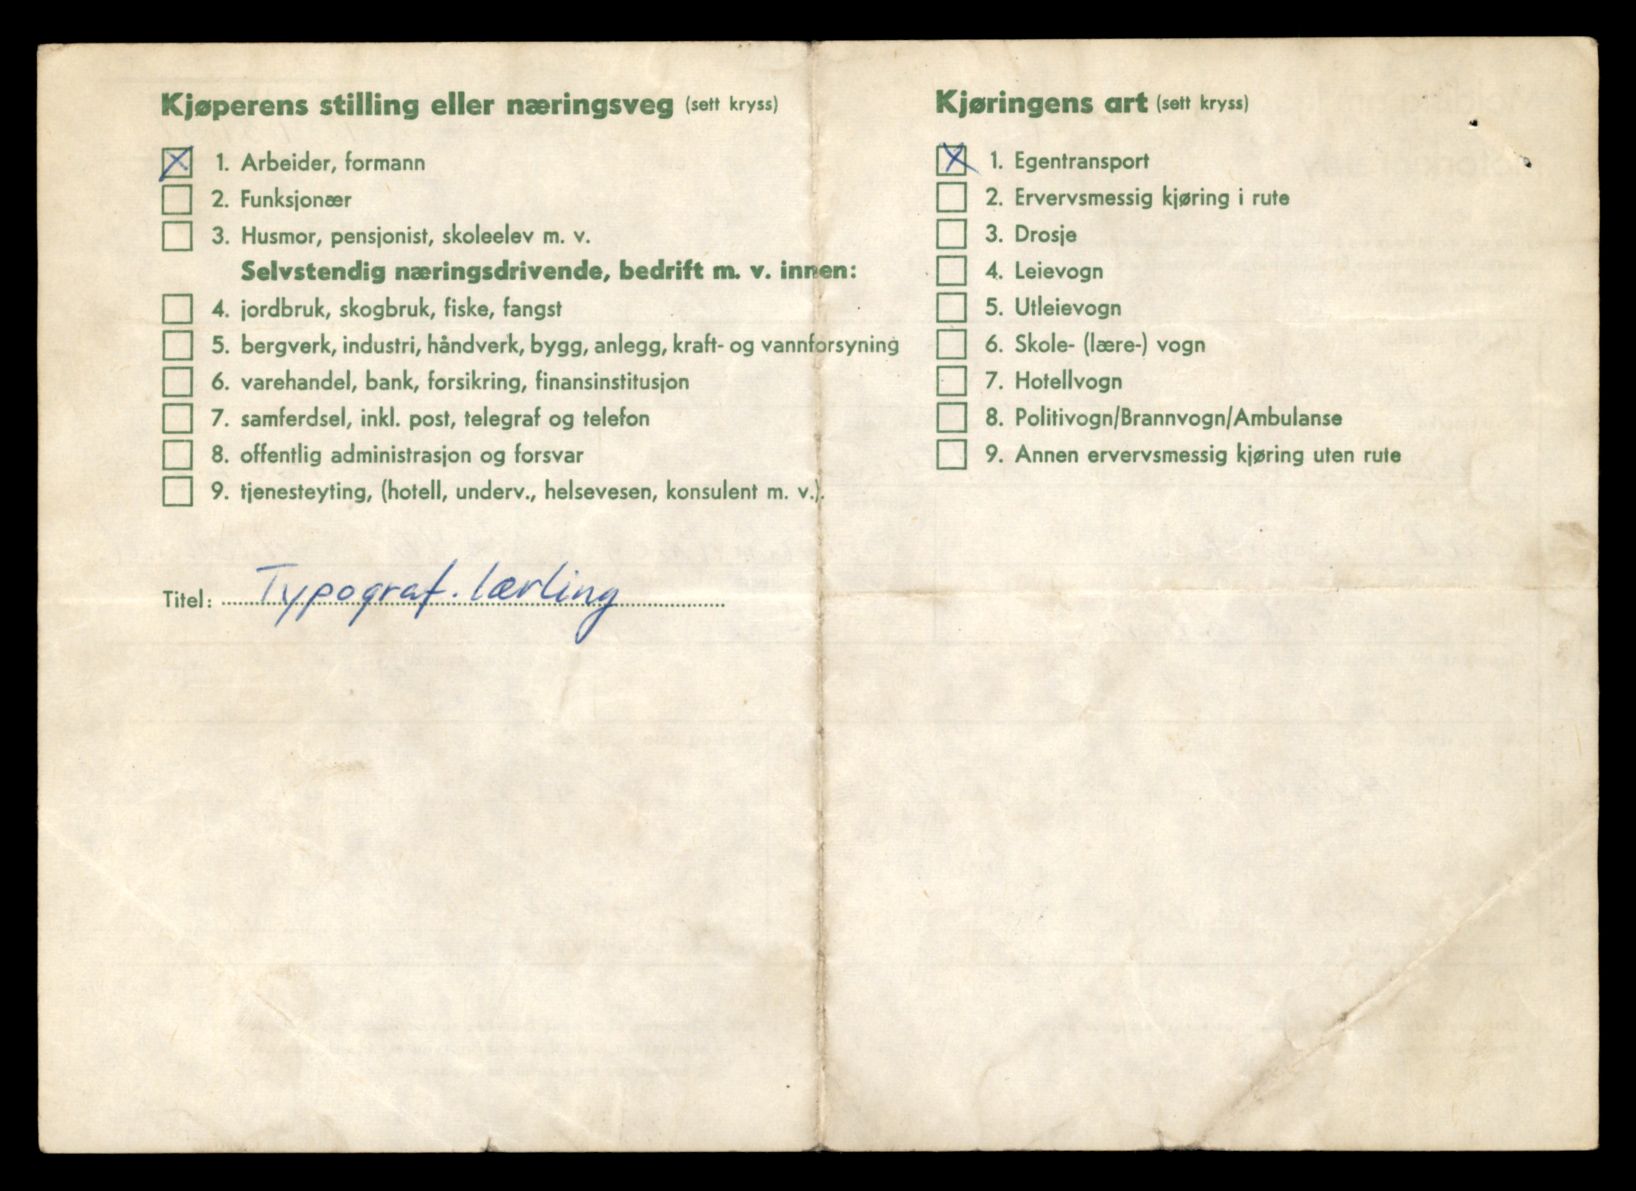 Kjøperens stilling eller næringsveg (sett kryss)
1. Arbeider, formann
2. Funksjonær
3. Husmor, pensjonist, skoleelev m. v.
Selvstendig næringsdrivende, bedrift m. v. innen:
4. jordbruk, skogbruk, fiske, fangst
5. bergverk, industri, håndverk, bygg, anlegg, kraft- og vannforsyning
6. varehandel, bank, forsikring, finansinstitusjon
7. samferdsel, inkl. post, telegraf og telefon
8. offentlig administrasjon og forsvar
9. tjenesteyting, (hotell, underv., helsevesen, konsulent m. v.).
Titel: Typograf. lærling
Kjøringens art (sett kryss)
1. Egentransport
2. Ervervsmessig kjøring i rute
3. Drosje
4. Leievogn
5. Utleievogn
6. Skole- (lære-) vogn
7. Hotellvogn
8. Politivogn/Brannvogn/Ambulanse
9. Annen ervervsmessig kjøring uten rute